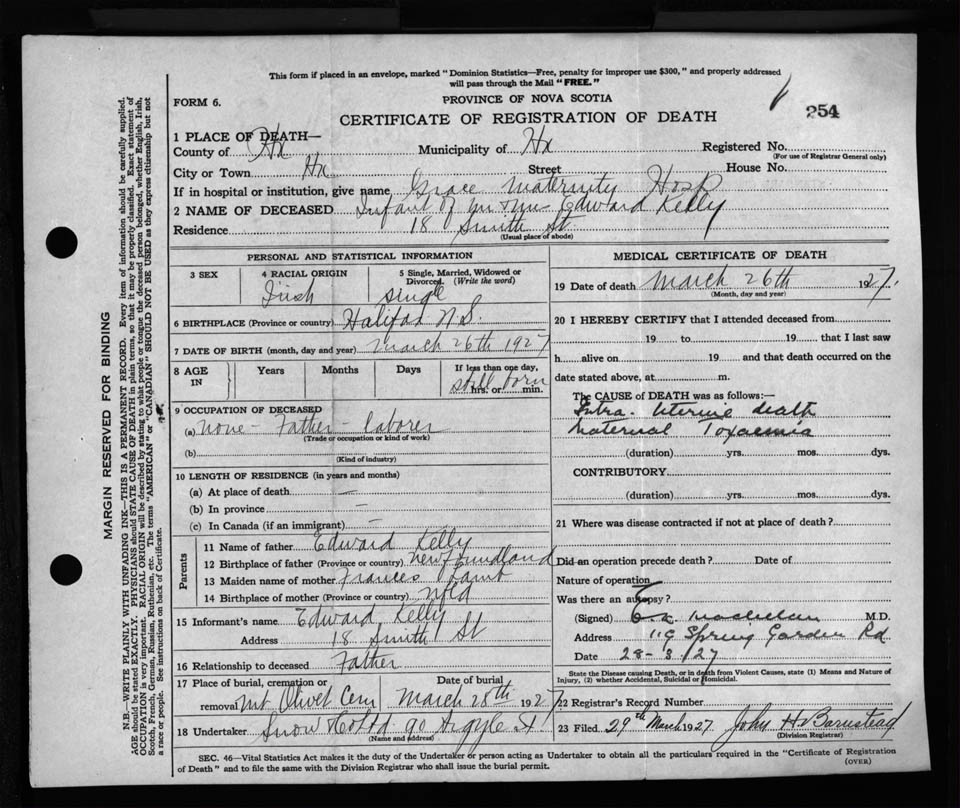 This form if placed in an envelope, marked "Dominion Statistics—Free, penalty for improper use $300," and properly addressed
will pass through the Mail "FREE."
FORM 6.
PROVINCE OF NOVA SCOTIA
254
CERTIFICATE OF REGISTRATION OF DEATH
1 PLACE OF DEATH—
County of Hx Municipality of Hx Registered No.
(For use of Registrar General only)
City or Town Hx Street House No.
If in hospital or institution, give name Grace Maternity Hosp
2 NAME OF DECEASED Infant of Mr & Mrs Edward Kelly
Residence 18 Smith St
(Usual place of abode)
PERSONAL AND STATISTICAL INFORMATION
3 SEX 4 RACIAL ORIGIN 5 Single, Married, Widowed or
Divorced. (Write the word)
Irish single
6 BIRTHPLACE (Province or country) Halifax N.S.
7 DATE OF BIRTH (month, day and year) March 26th 1927
8 AGE IN Years Months Days If less than one day,
still born
hrs. or min.
9 OCCUPATION OF DECEASED
(a) None - Father - laborer
(Trade or occupation or kind of work)
(b)
(Kind of industry)
10 LENGTH OF RESIDENCE (in years and months)
(a) At place of death —
(b) In province —
(c) In Canada (if an immigrant) —
Parents
11 Name of father Edward Kelly
12 Birthplace of father (Province or country) Newfoundland
13 Maiden name of mother Frances Lamb
14 Birthplace of mother (Province or country) Nfld
15 Informant's name Edward Kelly
Address 18 Smith St
16 Relationship to deceased Father
17 Place of burial, cremation or removal Date of burial
Mt Olivet Cem March 28th 1927
18 Undertaker Snow & Co Ltd 90 Argyle St
(Name and address)
MEDICAL CERTIFICATE OF DEATH
19 Date of death March 26th 1927
(Month, day and year)
20 I HEREBY CERTIFY that I attended deceased from
19 to 19 that I last saw
h alive on 19 and that death occurred on
date stated above, at m.
The CAUSE of DEATH was as follows:—
Intra. Uterine death
Maternal Toxaemia
(duration) yrs. mos. dys.
CONTRIBUTORY
(duration) yrs. mos. dys.
21 Where was disease contracted if not at place of death?
Did an operation precede death? Date of
Nature of operation
Was there an autopsy?
(Signed) M.D.
Address 116 Spring Garden Rd
Date 28-3/27
State the Disease causing Death, or in death from Violent Causes, state (1) Means and Nature of
Injury, (2) whether Accidental, Suicidal or Homicidal.
22 Registrar's Record Number
23 Filed 29th March 1927 John H Barnstead
(Division Registrar)
SEC. 46—Vital Statistics Act makes it the duty of the Undertaker or person acting as Undertaker to obtain all the particulars required in the "Certificate of Registration
of Death" and to file the same with the Division Registrar who shall issue the burial permit.
(OVER)
MARGIN RESERVED FOR BINDING
N.B.—WRITE PLAINLY WITH UNFADING INK—THIS IS A PERMANENT RECORD. Every item of information should be carefully supplied.
AGE should be stated EXACTLY. PHYSICIANS should STATE CAUSE OF DEATH in plain terms, so that it may be properly classified. Exact statement of
OCCUPATION is very important. RACIAL ORIGIN will be described by stating to what people or tongue the deceased person belonged, whether English, Irish,
Scotch, French, German, Russian, Ruthenian, etc. The terms "AMERICAN" or "CANADIAN" SHOULD NOT BE USED as they express citizenship but not
a race or people. See instructions on back of Certificate.